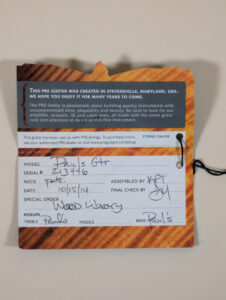 THIS PRS GUITAR WAS CREATED IN STEVENSVILLE, MARYLAND, USA.
WE HOPE YOU ENJOY IT FOR MANY YEARS TO COME.
The PRS family is passionate about building quality instruments with
uncompromised tone, playability and beauty. Be sure to look for our
amplifier, acoustic, SE and case lines, all made with the same great
care and attention to detail as this fine instrument.
This guitar has been set up with PRS strings. To purchase more,
see your authorized PRS dealer or visit www.prsguitars.com/shop
STRING GAUGE
MODEL Paul's Gtr
SERIAL # 213776
NECK
ASSEMBLED BY
DATE 10/15/14
FINAL CHECK BY
SPECIAL ORDER Wood Library
PICKUPS
TREBLE Paul's MIDDLE BASS Paul's